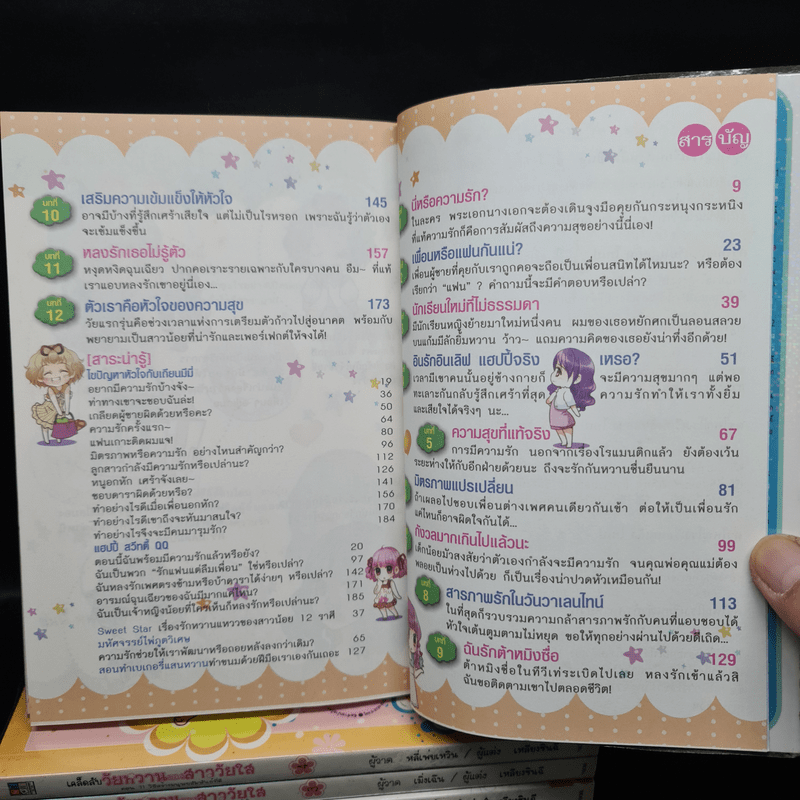 บทที่ 10 เสริมความเข้มแข็งให้หัวใจ 145
อาจมีบ้างที่รู้สึกเศร้าเสียใจ แต่ไม่เป็นไรหรอก เพราะฉันรู้ว่าตัวเอง
จะเข้มแข็งขึ้น
บทที่ 11 หลงรักเธอไม่รู้ตัว 157
หงุดหงิดฉุนเฉียว ปากคอเราะรายเฉพาะกับใครบางคน อืม~ ที่แท้
เราแอบหลงรักเขาอยู่นี่เอง...
บทที่ 12 ตัวเราคือหัวใจของความสุข 173
วัยแรกรุ่นคือช่วงเวลาแห่งการเตรียมตัวก้าวไปสู่อนาคต พร้อมกับ
พยายามเป็นสาวน้อยที่น่ารักและเพอร์เฟกต์ให้จงได้!
[สาระน่ารู้]
ไขปัญหาหัวใจกับเถียนมีมี่
อยากมีความรักบ้างจัง~ 19
ท่าทางเขาจะชอบฉันล่ะ! 36
เกลียดผู้ชายผิดด้วยหรือคะ? 50
ความรักครั้งแรก~ 64
แฟนเกาะติดผมแจ! 80
มิตรภาพหรือความรัก อย่างไหนสำคัญกว่า? 96
ลูกสาวกำลังมีความรักหรือเปล่านะ? 112
หนูอกหัก เศร้าจังเลย~ 126
ชอบดาราผิดด้วยหรือ? 141
ทำอย่างไรดีเมื่อเพื่อนอกหัก? 156
ทำอย่างไรดีเขาถึงจะหันมาสนใจ? 170
ทำอย่างไรจึงจะมีคนมารุมรัก? 184
แฮปปี้ สวีทตี้ QQ
ตอนนี้ฉันพร้อมมีความรักแล้วหรือยัง? 20
ฉันเป็นพวก "รักแฟนแต่ลืมเพื่อน" ใช่หรือเปล่า? 97
ฉันหลงรักเพศตรงข้ามหรือบ้าดาราได้ง่ายๆ หรือเปล่า? 142
อารมณ์ฉุนเฉียวของฉันมีมากแค่ไหน? 171
ฉันเป็นเจ้าหญิงน้อยที่ใครเห็นก็หลงรักหรือเปล่านะ? 185
Sweet Star เรื่องรักหวานแหววของสาวน้อย 12 ราศี 37
มหัศจรรย์ไพ่ภูตวิเศษ
ความรักช่วยให้เราพัฒนาหรือถอยหลังลงกว่าเดิม? 65
สอนทำเบเกอรี่แสนหวาน ทำขนมด้วยฝีมือเราเองกันเถอะ 127
สารบัญ
นี่หรือความรัก? 9
ในละคร พระเอกนางเอกจะต้องเดินจูงมือคุยกันกระหนุงกระหนิง
ที่แท้ความรักก็คือการสัมผัสถึงความสุขอย่างนี้นี่เอง!
เพื่อนหรือแฟนกันแน่? 23
เพื่อนผู้ชายที่คุยกับเราถูกคอจะถือเป็นเพื่อนสนิทได้ไหมนะ? หรือต้อง
เรียกว่า "แฟน" ? คำถามนี้จะมีคำตอบหรือเปล่า?
นักเรียนใหม่ที่ไม่ธรรมดา 39
มีนักเรียนหญิงย้ายมาใหม่หนึ่งคน ผมของเธอหยักศกเป็นลอนสลวย
บนแก้มมีลักยิ้มหวาน ว้าว~ แถมความคิดของเธอยังน่าทึ่งอีกด้วย!
อินรักอินเลิฟ แฮปปี้จริงเหรอ? 51
เวลามีเขาคนนั้นอยู่ข้างกายก็จะมีความสุขมากๆ แต่พอ
ทะเลาะกันกลับรู้สึกเศร้าที่สุด ความรักทำให้เราทั้งยิ้ม
และเสียใจได้จริงๆ นะ...
บทที่ 5 ความสุขที่แท้จริง 67
การมีความรัก นอกจากเรื่องโรแมนติกแล้ว ยังต้องเว้น
ระยะห่างให้กับอีกฝ่ายด้วยนะ ถึงจะรักกันหวานชื่นยืนนาน
มิตรภาพแปรเปลี่ยน 81
ถ้าเผลอไปชอบเพื่อนต่างเพศคนเดียวกันเข้า ต่อให้เป็นเพื่อนรัก
แค่ไหนก็อาจผิดใจกันได้...
กังวลมากเกินไปแล้วนะ 99
เด็กน้อยมัวสงสัยว่าตัวเองกำลังจะมีความรัก จนคุณพ่อคุณแม่ต้อง
พลอยเป็นห่วงไปด้วย ก็เป็นเรื่องน่าปวดหัวเหมือนกัน!
บทที่ 8 สารภาพรักในวันวาเลนไทน์ 113
ในที่สุดก็รวบรวมความกล้าสารภาพรักกับคนที่แอบชอบได้
หัวใจเต้นตูมตามไม่หยุด ขอให้ทุกอย่างผ่านไปด้วยดีเถิด...
บทที่ 9 ฉันรักต้าหมิงซื่อ 129
ต้าหมิงซื่อในทีวีเท่ระเบิดไปเลย หลงรักเข้าแล้วสิ
ฉันขอติดตามเขาไปตลอดชีวิต!
เคล็ดลับวัยหวาน สาววัยใส ผู้วาด หลี่เพ่ยเหวิน / ผู้แต่ง เหลียงซินอี